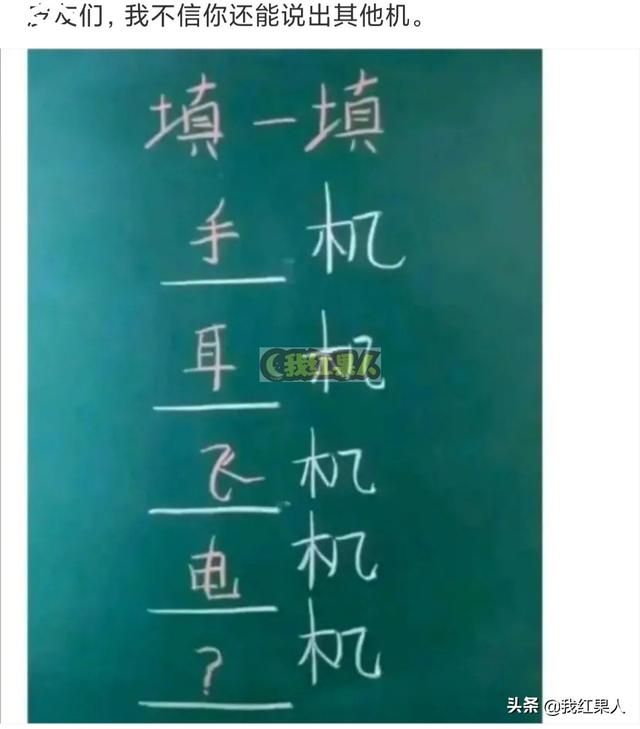 们，我不信你还能说出其他机。
填一填
手 机
耳 机
我红果人
飞 机
电 机
？ 机
头条 @我红果人